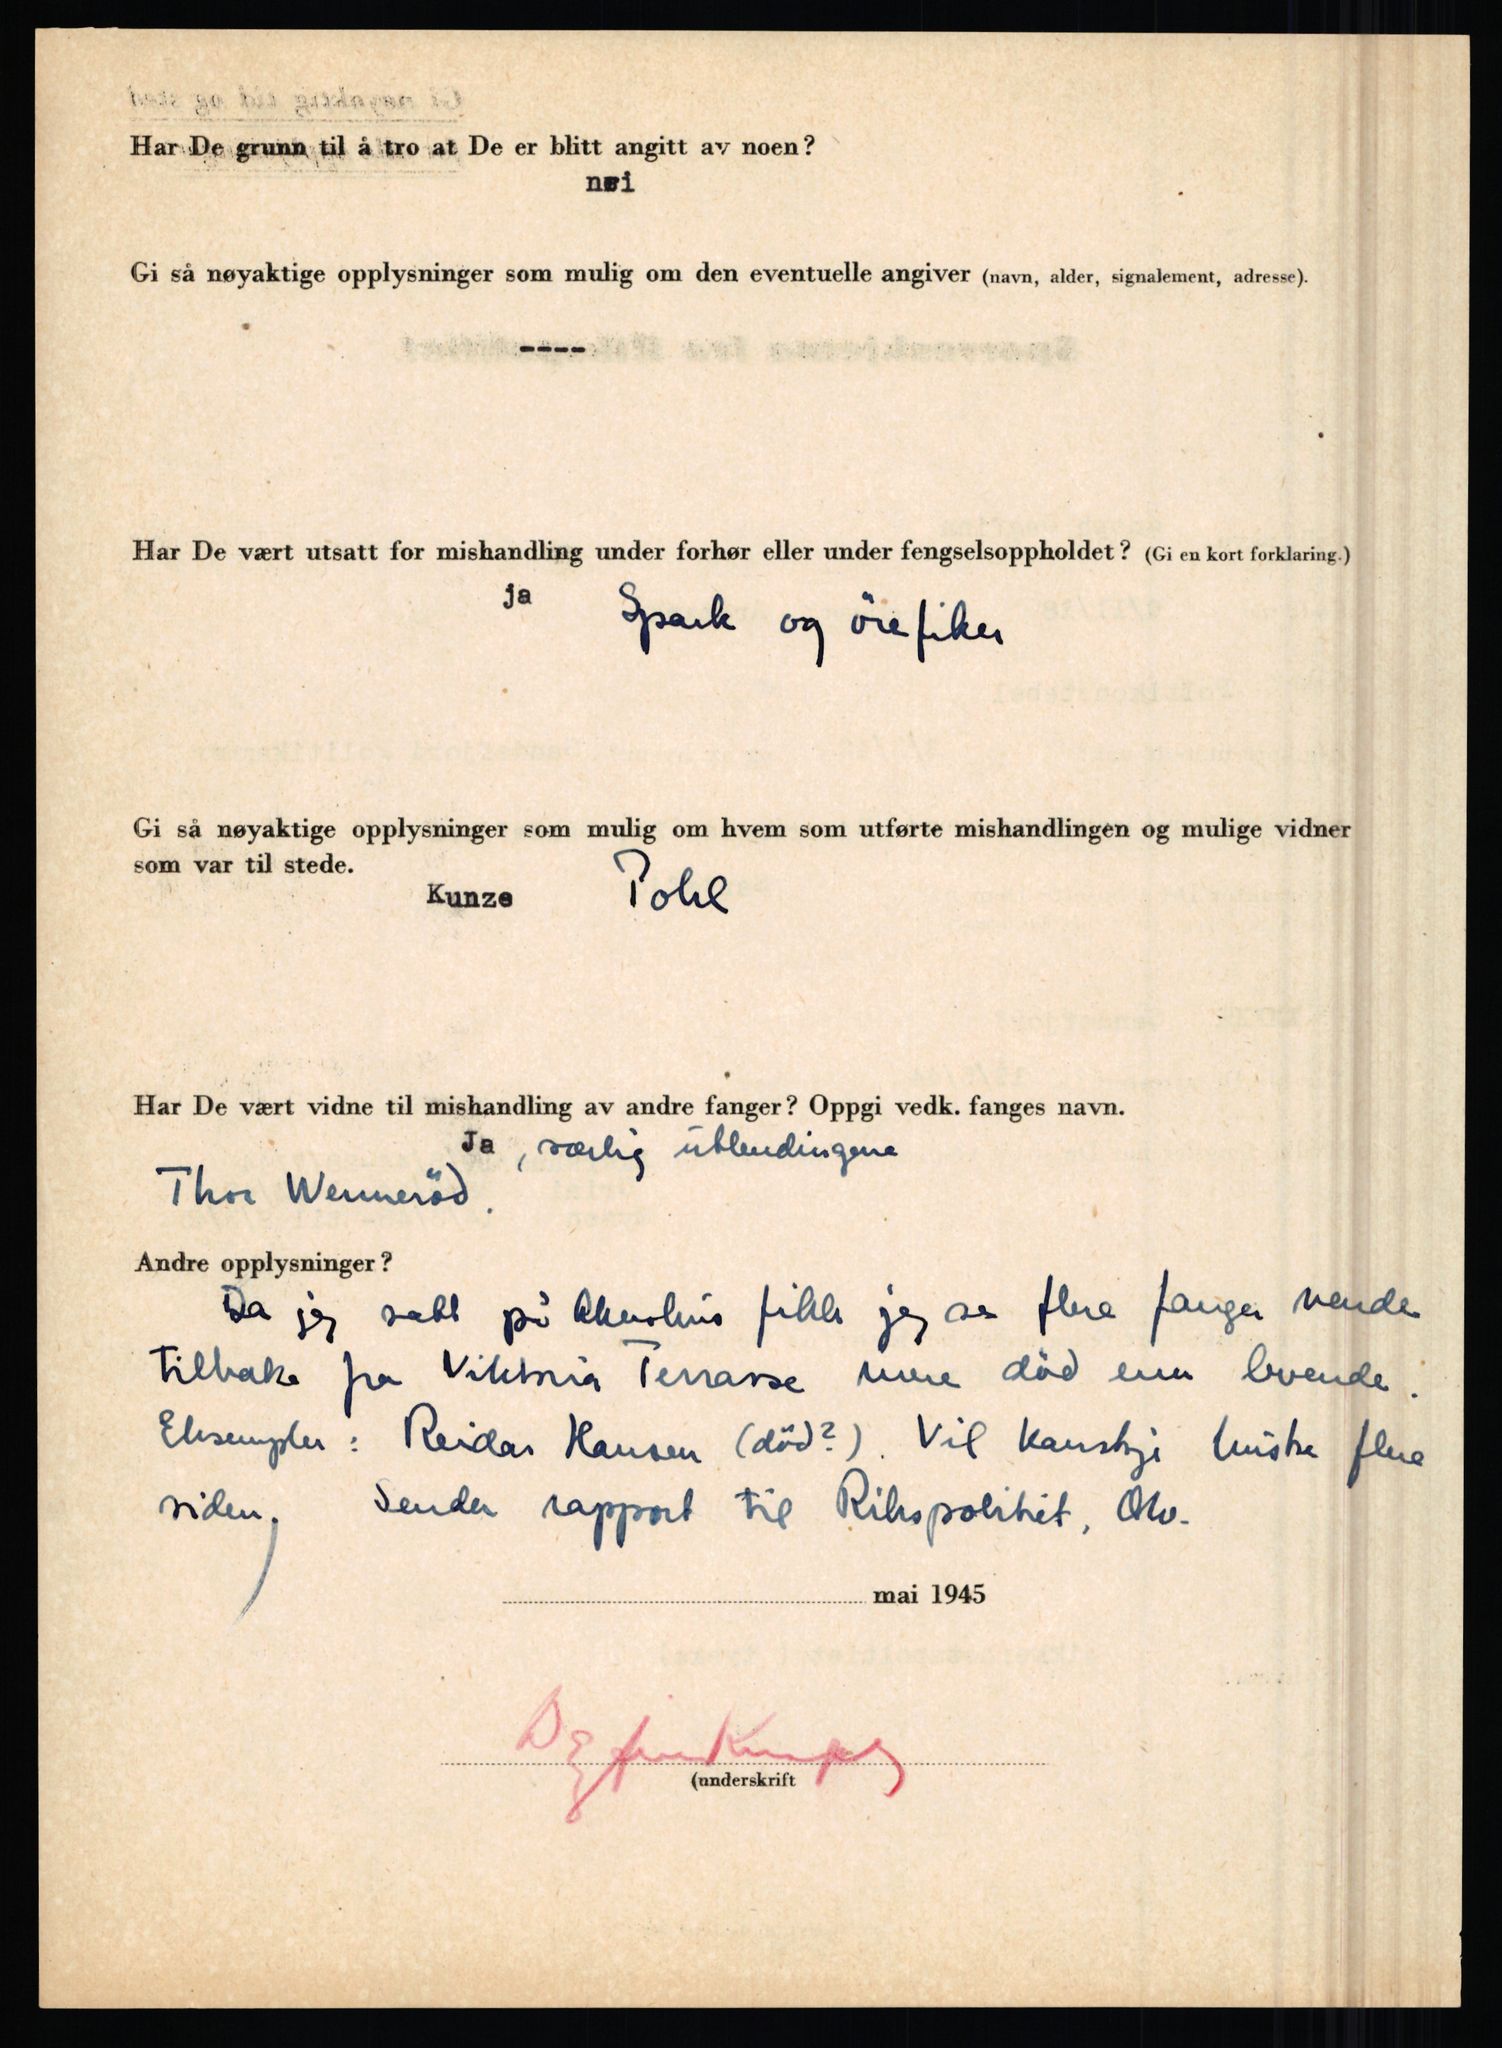 Har De grunn til å tro at De er blitt angitt av noen?
nei
Gi så nøyaktige opplysninger som mulig om den eventuelle angiver (navn, alder, signalement, adresse).
----
Har De vært utsatt for mishandling under forhør eller under fengselsoppholdet? (Gi en kort forklaring.)
ja Spark og örefiker
Gi så nøyaktige opplysninger som mulig om hvem som utførte mishandlingen og mulige vidner
som var til stede.
Kunze Pohl
Har De vært vidne til mishandling av andre fanger? Oppgi vedk. fanges navn.
Ja, særlig utlendingene
Thor Wenneröd.
Andre opplysninger?
Da jeg satt på Akershus fikk jeg se flere fanger vende
tilbake fra Viktoria Terrasse mere död enn levende.
Eksempler: Reidar Hansen (död?). Vil kanskje huske flere
siden. Sender rapport til Rikspolitiet, Oslo.
mai 1945
Dagfinn
(underskrift